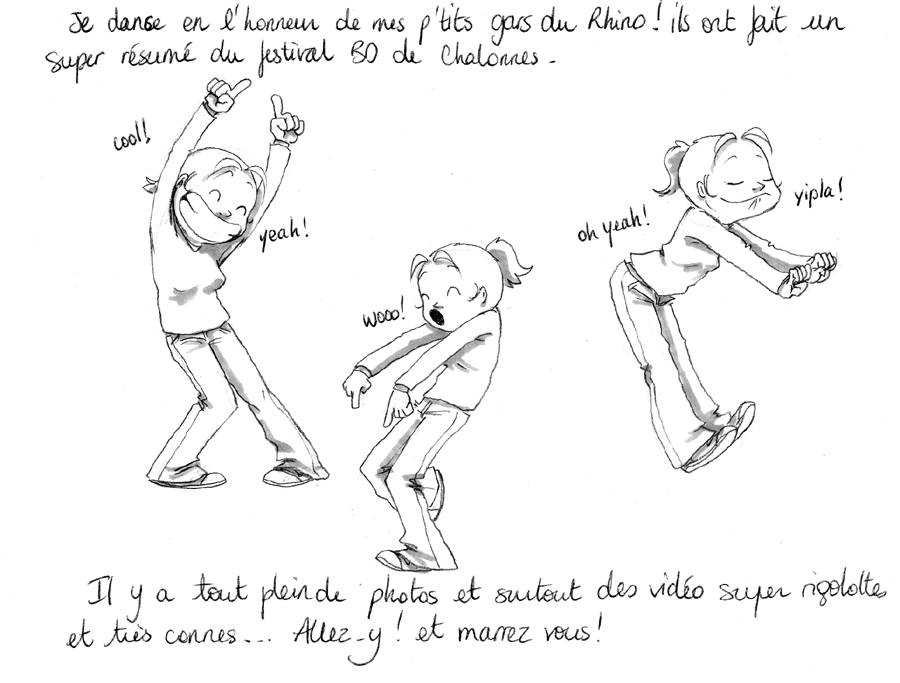 Je danse en l'honneur de mes p'tits gars du Rhino! ils ont fait un
super résumé du festival BD de Chalonnes.
cool!
yeah!
wooo!
oh yeah!
yipla!
Il y a tout plein de photos et surtout des vidéo super rigolottes
et très connes... Allez-y! et marrez vous!